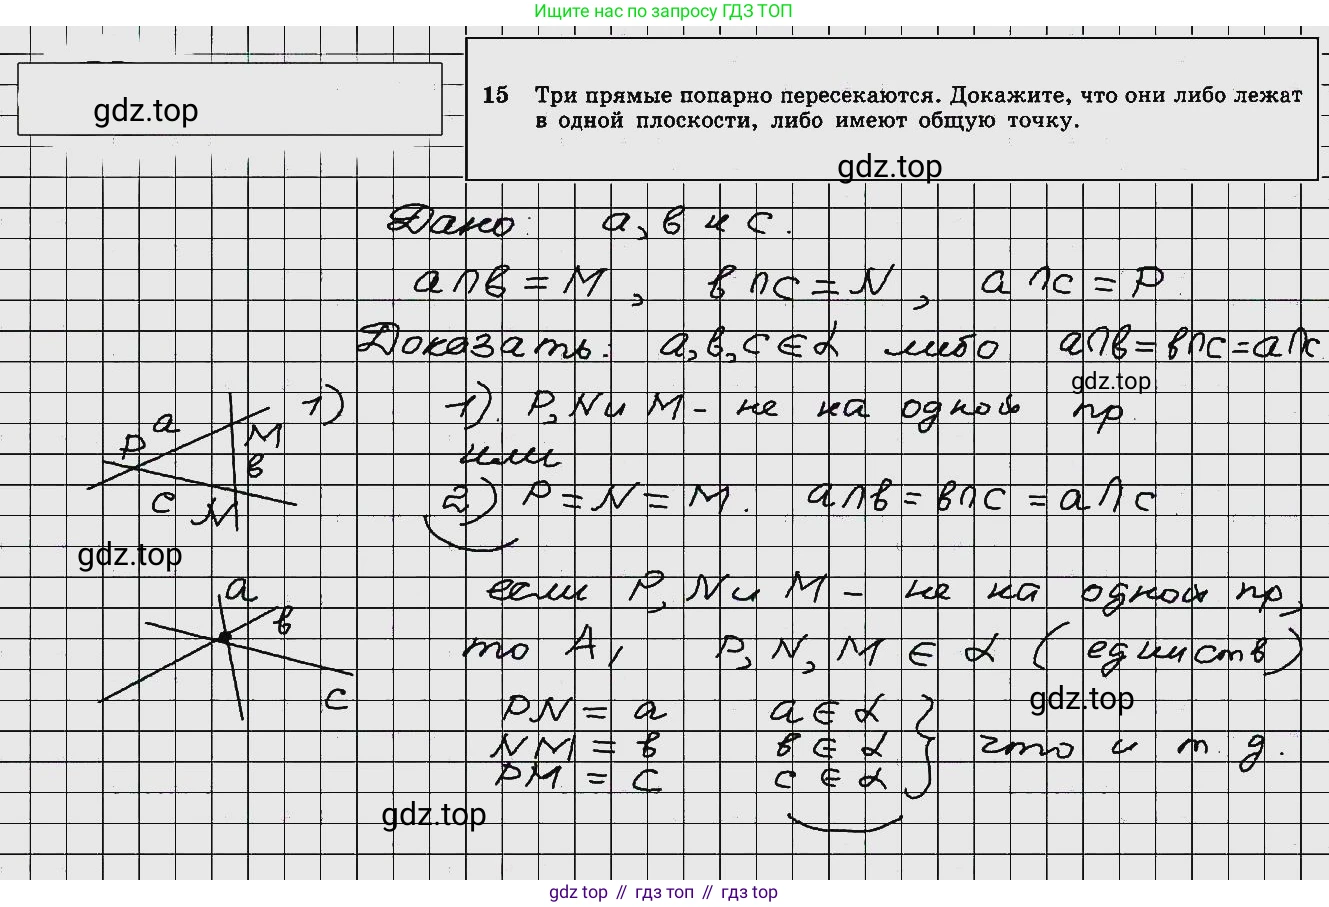 Ищите нас по запросу ГДЗ ТОП
gdz.top
15 Три прямые попарно пересекаются. Докажите, что они либо лежат
в одной плоскости, либо имеют общую точку.
gdz.top
Дано: a, b и c.
a∩b = M, b∩c = N, a∩c = P
Доказать: a, b, c ∈ α либо a∩b = b∩c = a∩c
gdz.top
1)
a
P
M
b
c
N
1). P, N и M - не на одной пр
или
2) P = N = M. a∩b = b∩c = a∩c
gdz.top
a
b
c
если P, N и M - не на одной пр,
то A, P, N, M ∈ α (единств)
gdz.top
PN = a a ∈ α
NM = b b ∈ α } что и т. д.
PM = c c ∈ α
gdz.top
gdz top // гдз топ // гдз top